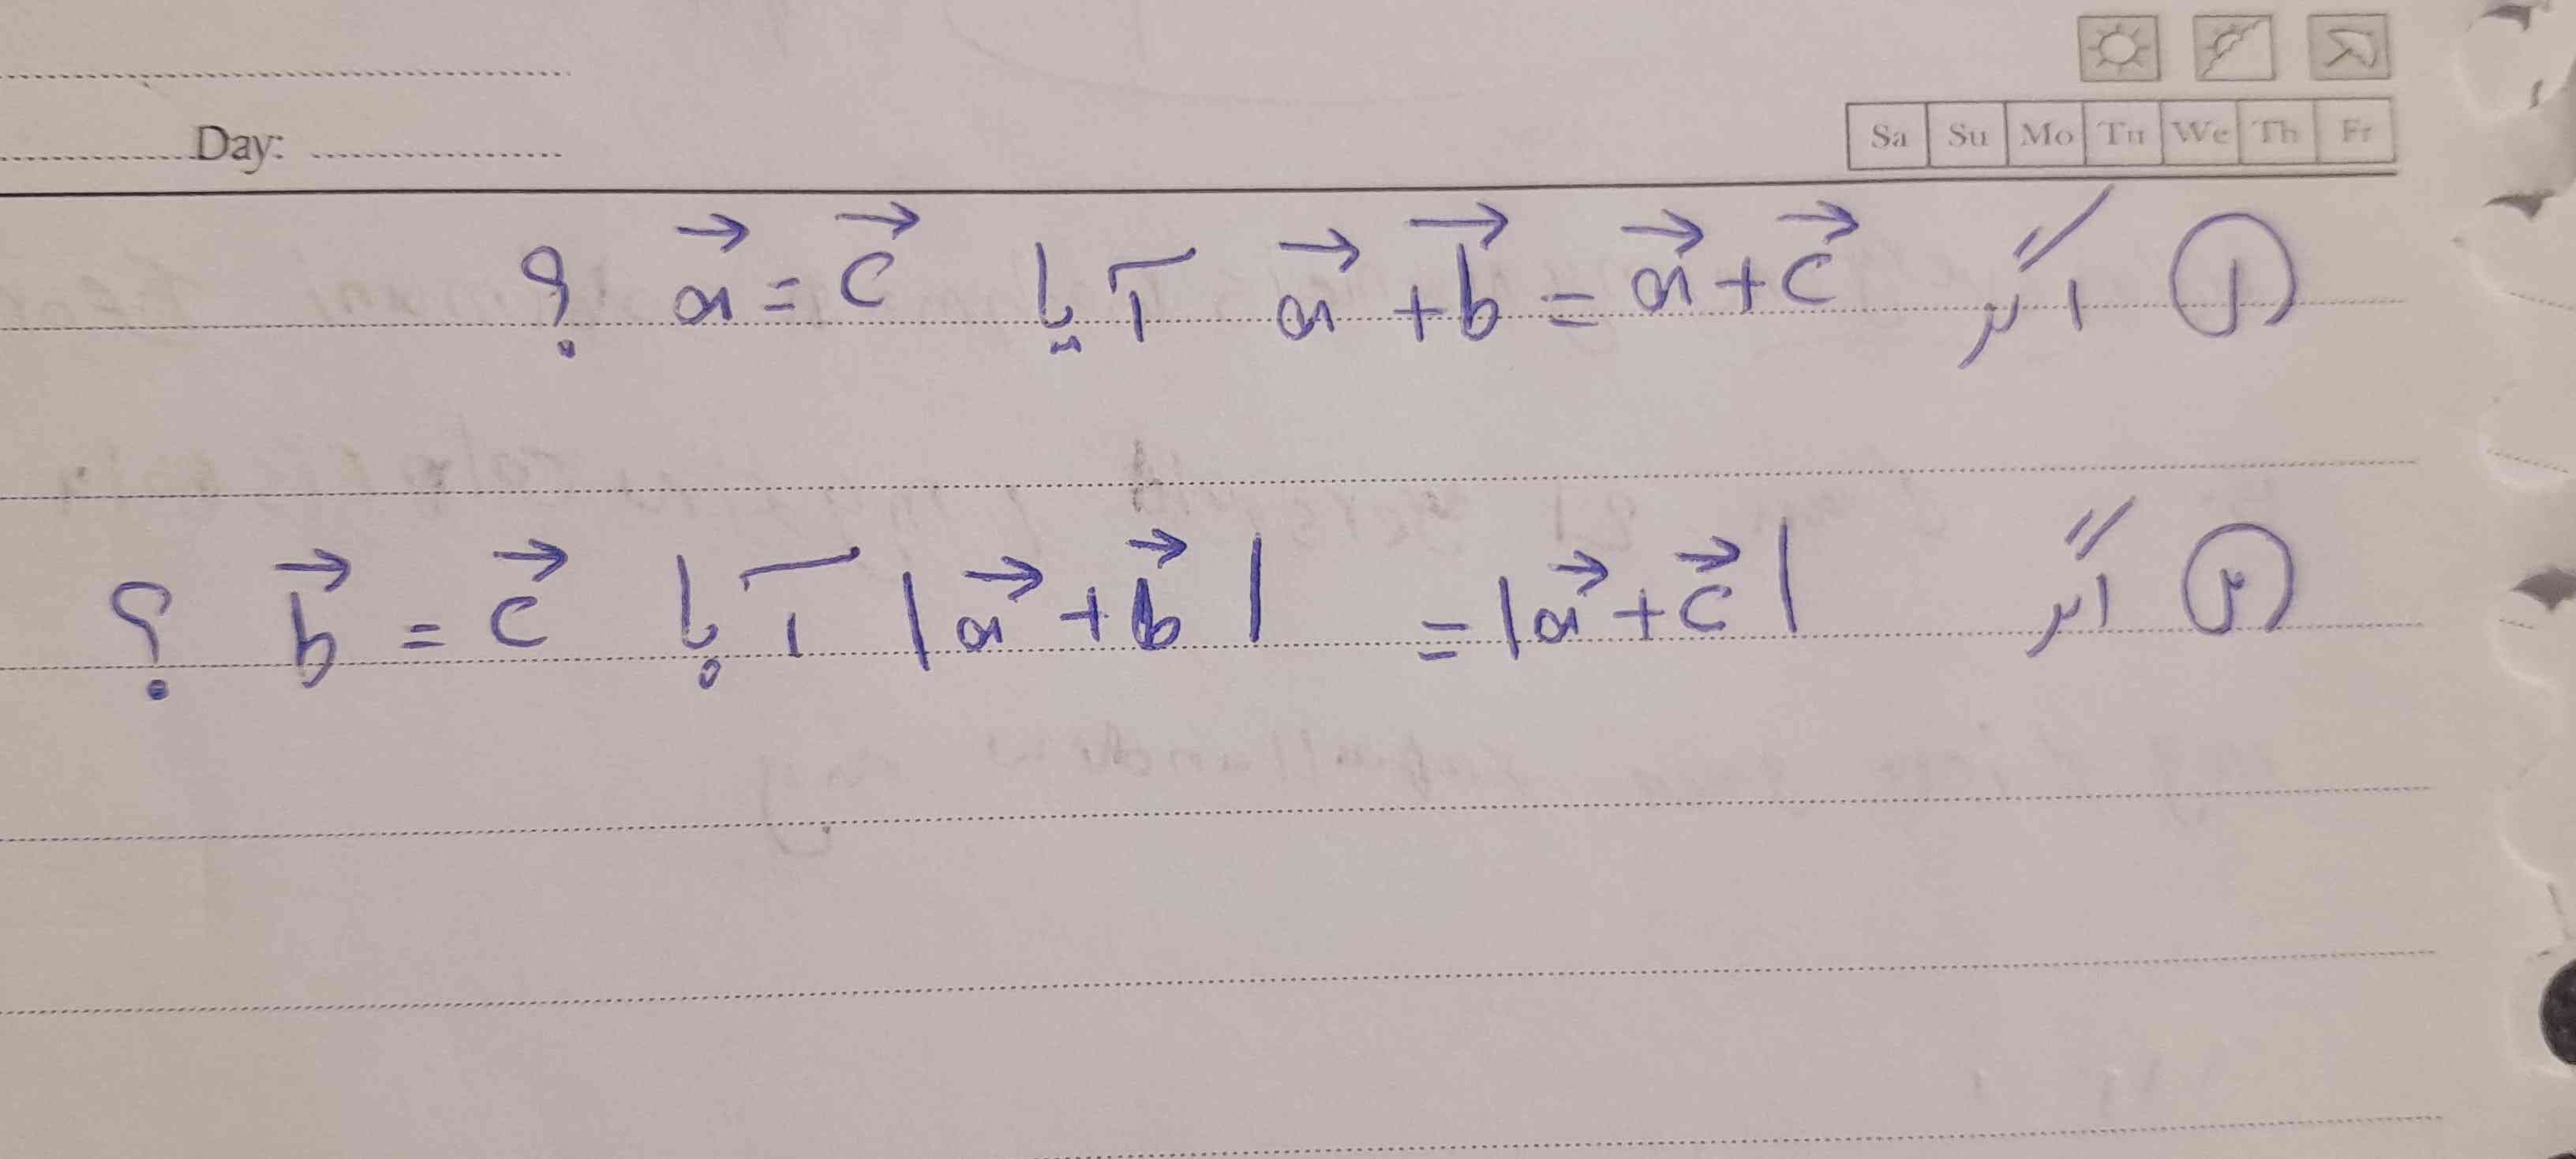 Day:
Sa Su Mo Tu We Th Fr
① اگر $\vec{a}+\vec{b}=\vec{a}+\vec{c}$ آیا $\vec{a}=\vec{c}$ ؟
② اگر $|\vec{a}+\vec{b}|=|\vec{a}+\vec{c}|$ آیا $\vec{b}=\vec{c}$ ؟